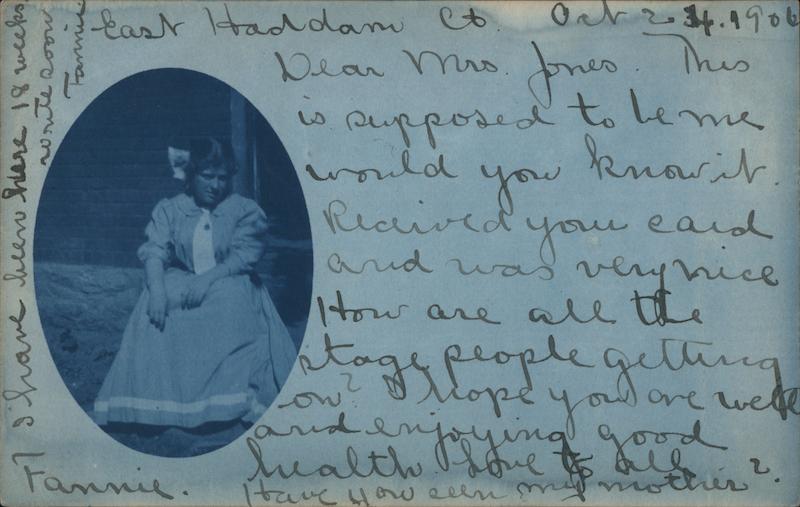 East Haddam Ct. Oct 24. 1906
Dear Mrs. Jones. This
is supposed to be me
would you know it.
Received your card
and was very nice
How are all the
stage people getting
on? I hope you are well
and enjoying good
health Love to all.
Have you seen my mother?
Fannie.
I have been here 18 weeks
write soon
Fannie